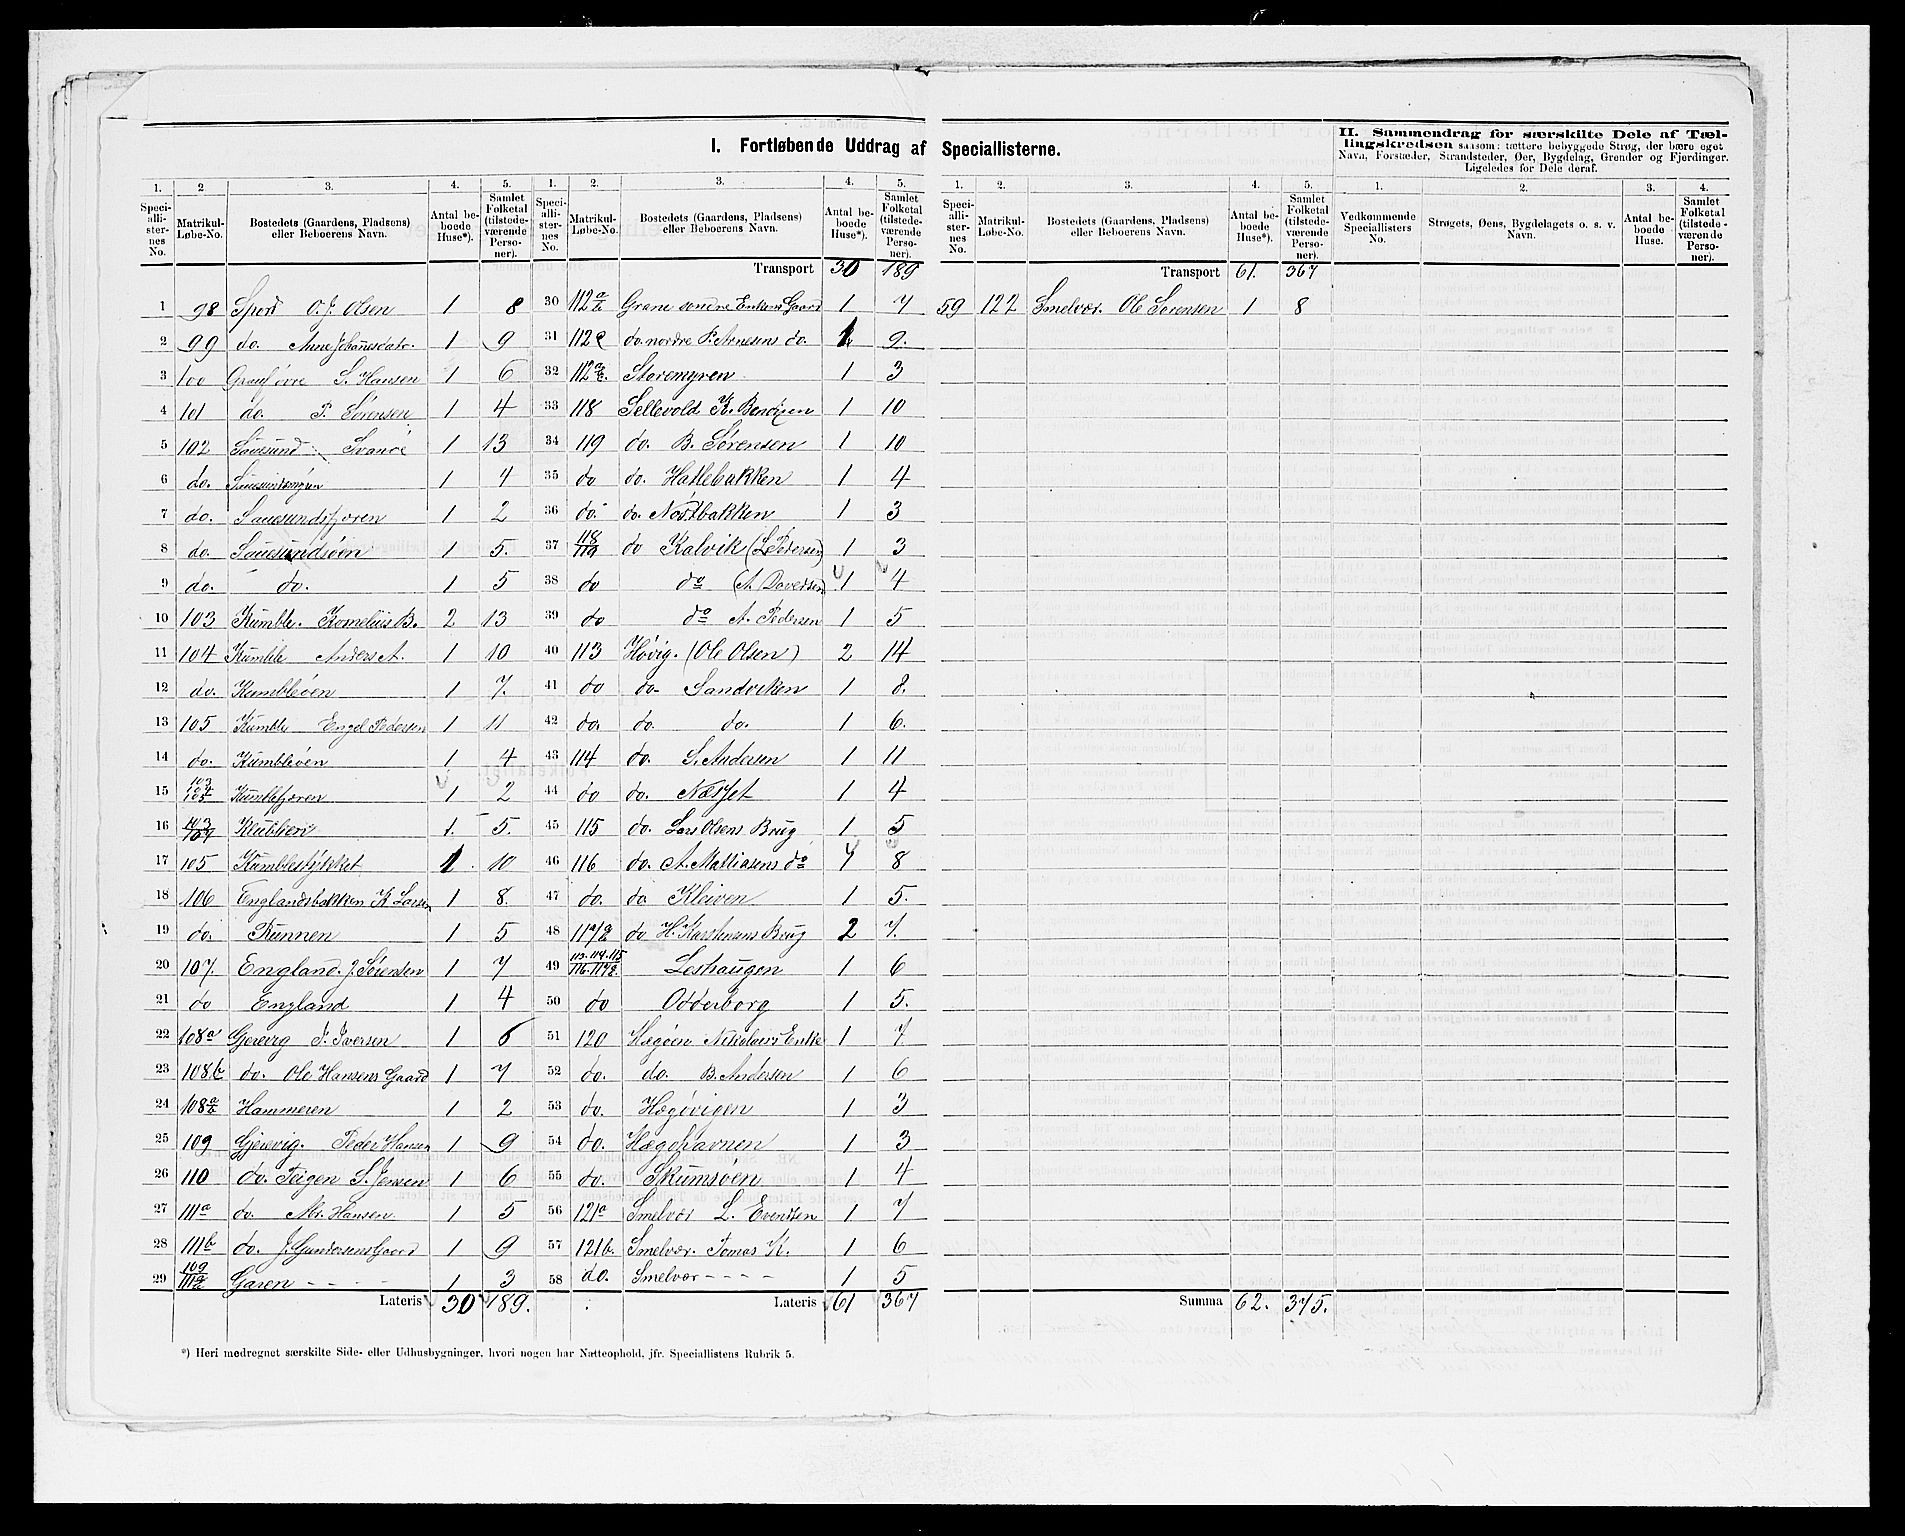 I. Fortløbende Uddrag af Speciallisterne.
II. Sammendrag for særskilte Dele af Tællingskredsen saasom: tættere bebyggede Strøg, der bære eget
Navn, Forstæder, Strandsteder, Øer, Bygdelag, Grender og Fjerdinger.
Ligeledes for Dele deraf.
1. 2 3. 4. 5.
Speciallisternes No. Matrikul-Løbe-No. Bostedets (Gaardens, Pladsens) eller Beboerens Navn. Antal beboede Huse*). Samlet Folketal (tilstedeværende Personer).
1 98 Sperd O. J. Olsen 1 8
2 99 do. Anne Johanesdatr. 1 9
3 100 S. Hansen 1 6
4 101 do. P. Sørensen 1 4
5 102 Sauesund Svanøe 1 13
6 do. Sauesundsmyren 1 4
7 do. Sauesundsfjæren 1 2
8 do. Sauesundsøen 1 5.
9 do. do. 1 5
10 103 Kumble. Kornelius B. 2 13
11 104 Kumble Anders A. 1 10
12 do. Kumbleøen 1 7.
13 105 Kumble Engel Pedersen 1 11
14 do. Kumbleøen 1 4
15 103 104 105 Kumblefjæren 1 2
16 103 104 1. 5.
17 105 Kumblestykket 1 10
18 106 Englandsbakken K. Larsen 1 8.
19 do. Runnen 1 5
20 107. England. J. Sørensen 1 7
21 do England 1 4
22 108a Gjerevig J. Iversen 1 6
23 108.b do. Ole Hansens Gaard 1 7
24 108a/b Hammeren 1 2
25 109 Gjerevig. Peder Hansen 1 9
26 110 do. Teigen S. Jensen 1 6
27 111a do. Mr. Hansen. 1 5
28 111b do. J. Gundersens Gaard 1 9
29 109 111a/b Garen - - - - 1 3
Lateris 30 189.
1. 2. 3. 4. 5.
Speciallisternes No. Matrikul-Løbe-No. Bostedets (Gaardens, Pladsens) eller Beboerens Navn. Antal beboede Huse*). Samlet Folketal (tilstedeværende Personer).
Transport 30 189
30 112a/b Grane søndre Enkens Gaard 1 7
31 112c do. nordre P. Arnesens do. 1 9.
32 112 Storemyren 1 3
33 118 Sellevold K. 1 10
34 119 do. B. Sørensen 1 10
35 do do. Hatlebakken 1 4
36 do. do. Nøstbakken 1 3
37 118/119 do Kalvik (L. Pedersen) 1 3
38 do do (A. Davidsen) 1 4
39 do do A. Pedersen 1 5
40 113 Høvig. (Ole Olsen) 2 14
41 do do. Sandviken 1 8.
42 do. do. do. 1 6.
43 114 do. S. Andersen 1 11
44 do do. Næsset 1 4
45 115 do. Lars Olsens Brug 1. 5
46 116 do. A. Mattiasens do 1 8
47 do. do Kleiven 1 5.
48 117a/b do H. Karstensens Brug 2 7.
49 113. 114. 115 116. 117a/b Leshaugen 1 6
50 do Odderborg 1 5.
51 120 Hægøen Nikolais Enke 1 7.
52 do. do. B. Andersen 1 6
53 do. Hægøvigen 1 3
54 do. Hægøhavnen 1 3
55 do. Skumsøen 1 4
56 121a Smelvær L. Evensen 1 7
57 121b. Smelvær. Tomas K. 1 6
58 do. Smelvær - - - - 1 5
Lateris 61 367
1. 2. 3. 4. 5.
Speciallisternes No. Matrikul-Løbe-No. Bostedets (Gaardens, Pladsens) eller Beboerens Navn. Antal beboede Huse*). Samlet Folketal (tilstedeværende Personer).
Transport 61. 367
59 122 Smelvær. Ole Sørensen 1 8
Summa 62. 375.
1. 2. 3. 4.
Vedkommende Speciallisters No. Strøgets, Øens, Bygdelagets o. s. v. Navn. Antal beboede Huse. Samlet Folketal (tilstedeværende Personer).
*) Heri medregnet særskilte Side- eller Udhusbygninger, hvori nogen har Natteophold, jfr. Speciallistens Rubrik 5.